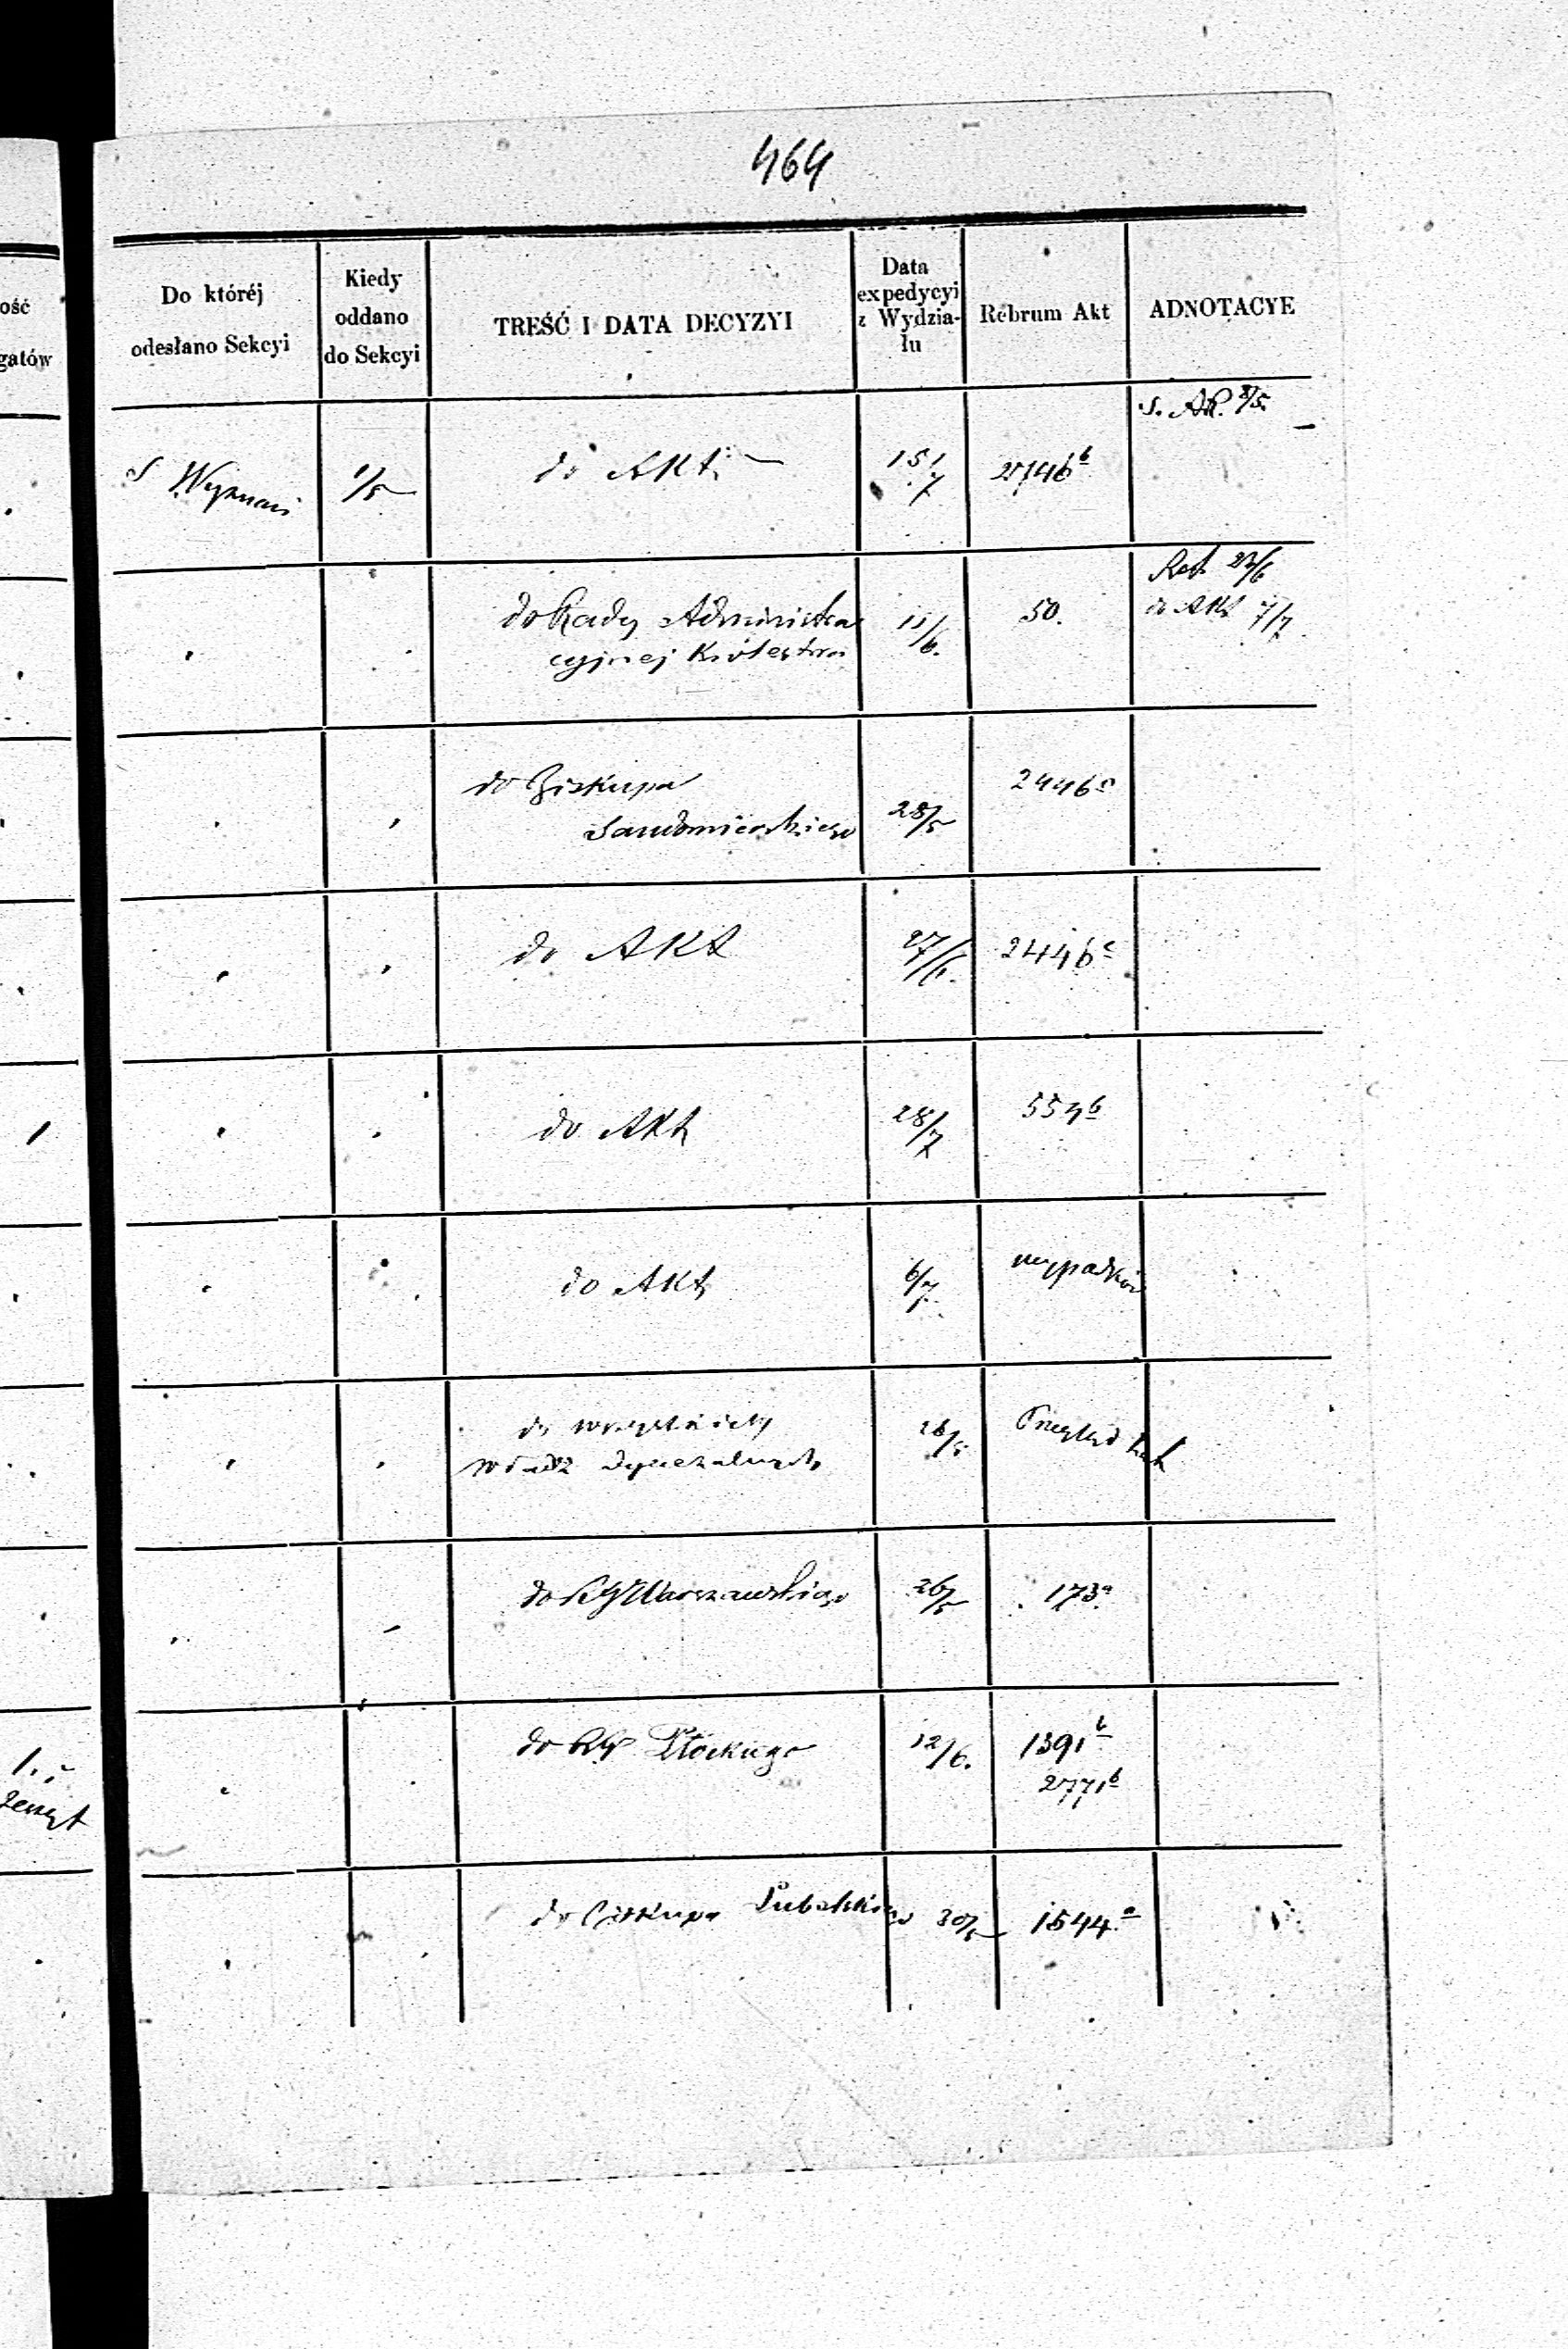 464
ość
gatów
Do któréj
odesłano Sekcyi
Kiedy
oddano
do Sekcyi
TREŚĆ I DATA DECYZYI
Data
expedycyi
z Wydzia-
łu
Rébrum Akt
ADNOTACYE
S. 8/5.
S Wyznań
1/5
do Akt
15/7
2746 b
Ret. 22/6
do Akt 7/7
do Rady Administra
cyjnej Królestwa
11/6.
50.
do Biskupa
Sandomierskiego
28/5
2446 c
do Akt
27/6.
2446 c
do Akt
28/7
554 b
do Akt
6/7
wypadków
do wszystkich
władz dyecezalnych
26/5
Przegląd
do RG Warszawskiego
26/5
173 a
1.
zeszyt
do RG Płockiego
12/6.
1391 b
2771 b
do Biskupa Lubelskiego
30/5
1544. a